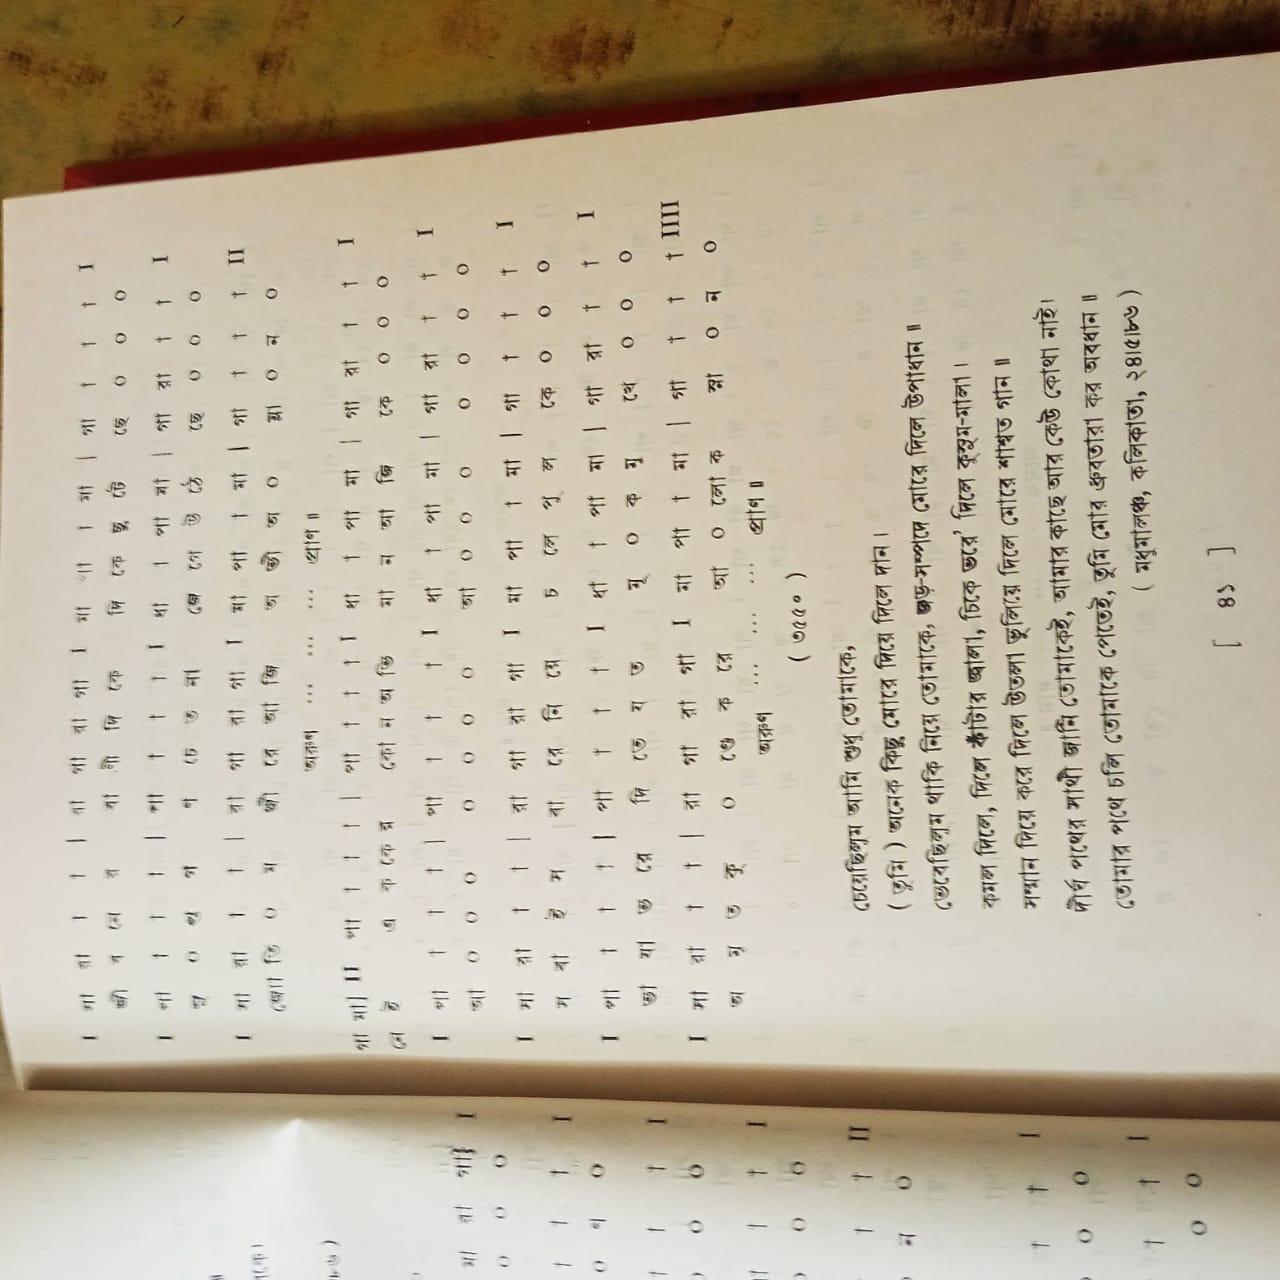 I মা রা া া | রা গা রা গা I মা গা া মা | গা া া া I
জী ব নে র বা ণী দি কে দি কে ছু টে ছে ০ ০ ০
I পা া া া | পা া া া I ধা া পা মা | গা রা া া I
সু ০ প্ত প থ চে ত না জে গে উ ঠে ছে ০ ০ ০
I মা রা া া | রা গা রা গা I মা গা া মা | গা া া া II
জ্যো তি ০ ম জী রে আ জি অ ভী অ ০ ম্লা ০ ন ০
অরুণ ... ... ... প্রাণ ॥
গা মা| II পা া া া | পা া া া I ধা া পা মা | গা রা া া I
নে ই এ ক কে র কো ন অ ভি মা ন আ জি কে ০ ০ ০
I পা া া া | পা া া া I ধা া পা মা | গা রা া া I
আ ০ ০ ০ ০ ০ ০ ০ আ ০ ০ ০ ০ ০ ০ ০
I মা রা া া | রা গা রা গা I মা গা া মা | গা া া া I
স বা ই স বা রে নি য়ে চ লে পু ল কে ০ ০ ০
I পা া া া | পা া া া I ধা া পা মা | গা রা া া I
ভা য়া ভ রে দি তে য ত মূ ০ ক মু খে ০ ০ ০
I মা রা া া | রা গা রা গা I মা গা া মা | গা া া া IIII
অ যু ত কু ০ ভে ক রে আ ০ লো ক স্না ০ ন ০
অরুণ ... ... ... প্রাণ ॥
( ৩৫৫০ )
চেয়েছিলুম আমি শুধু তোমাকে,
( তুমি ) অনেক কিছু মোরে দিয়ে দিলে দান ।
ভেবেছিলুম থাকি নিয়ে তোমাকে, জড়-সম্পদে মোরে দিলে উপাধান ॥
কমল দিলে, দিলে কাঁটার জ্বালা, চিকে ভরে' দিলে কুসুম-মালা ।
সম্মান দিয়ে করে দিলে উতলা ভুলিয়ে দিলে মোরে শাশ্বত গান ॥
দীর্ঘ পথের সাথী জানি তোমাকেই, আমার কাছে আর কেউ কোথা নাই।
তোমার পথে চলি তোমাকে পেতেই, তুমি মোর ধ্রুবতারা কর অবধান ॥
( মধুমালঞ্চ, কলিকাতা, ২৪।৫।৮৬ )
[ ৪১ ]